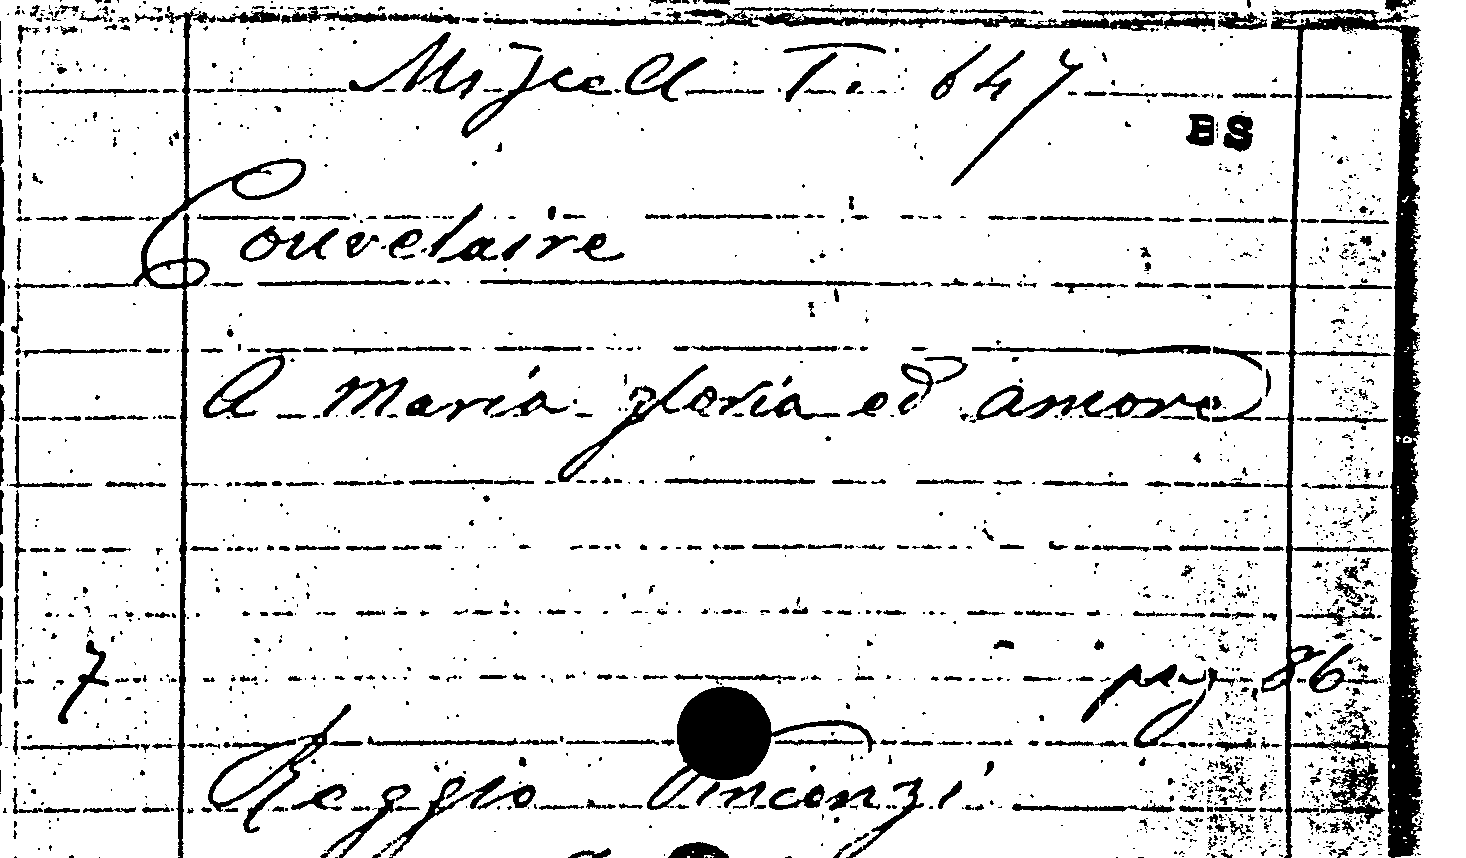 Miscell T. 647
BS
Couvelaire
A Maria gloria ed amore
7 pag 86
Reggio Vincenzi